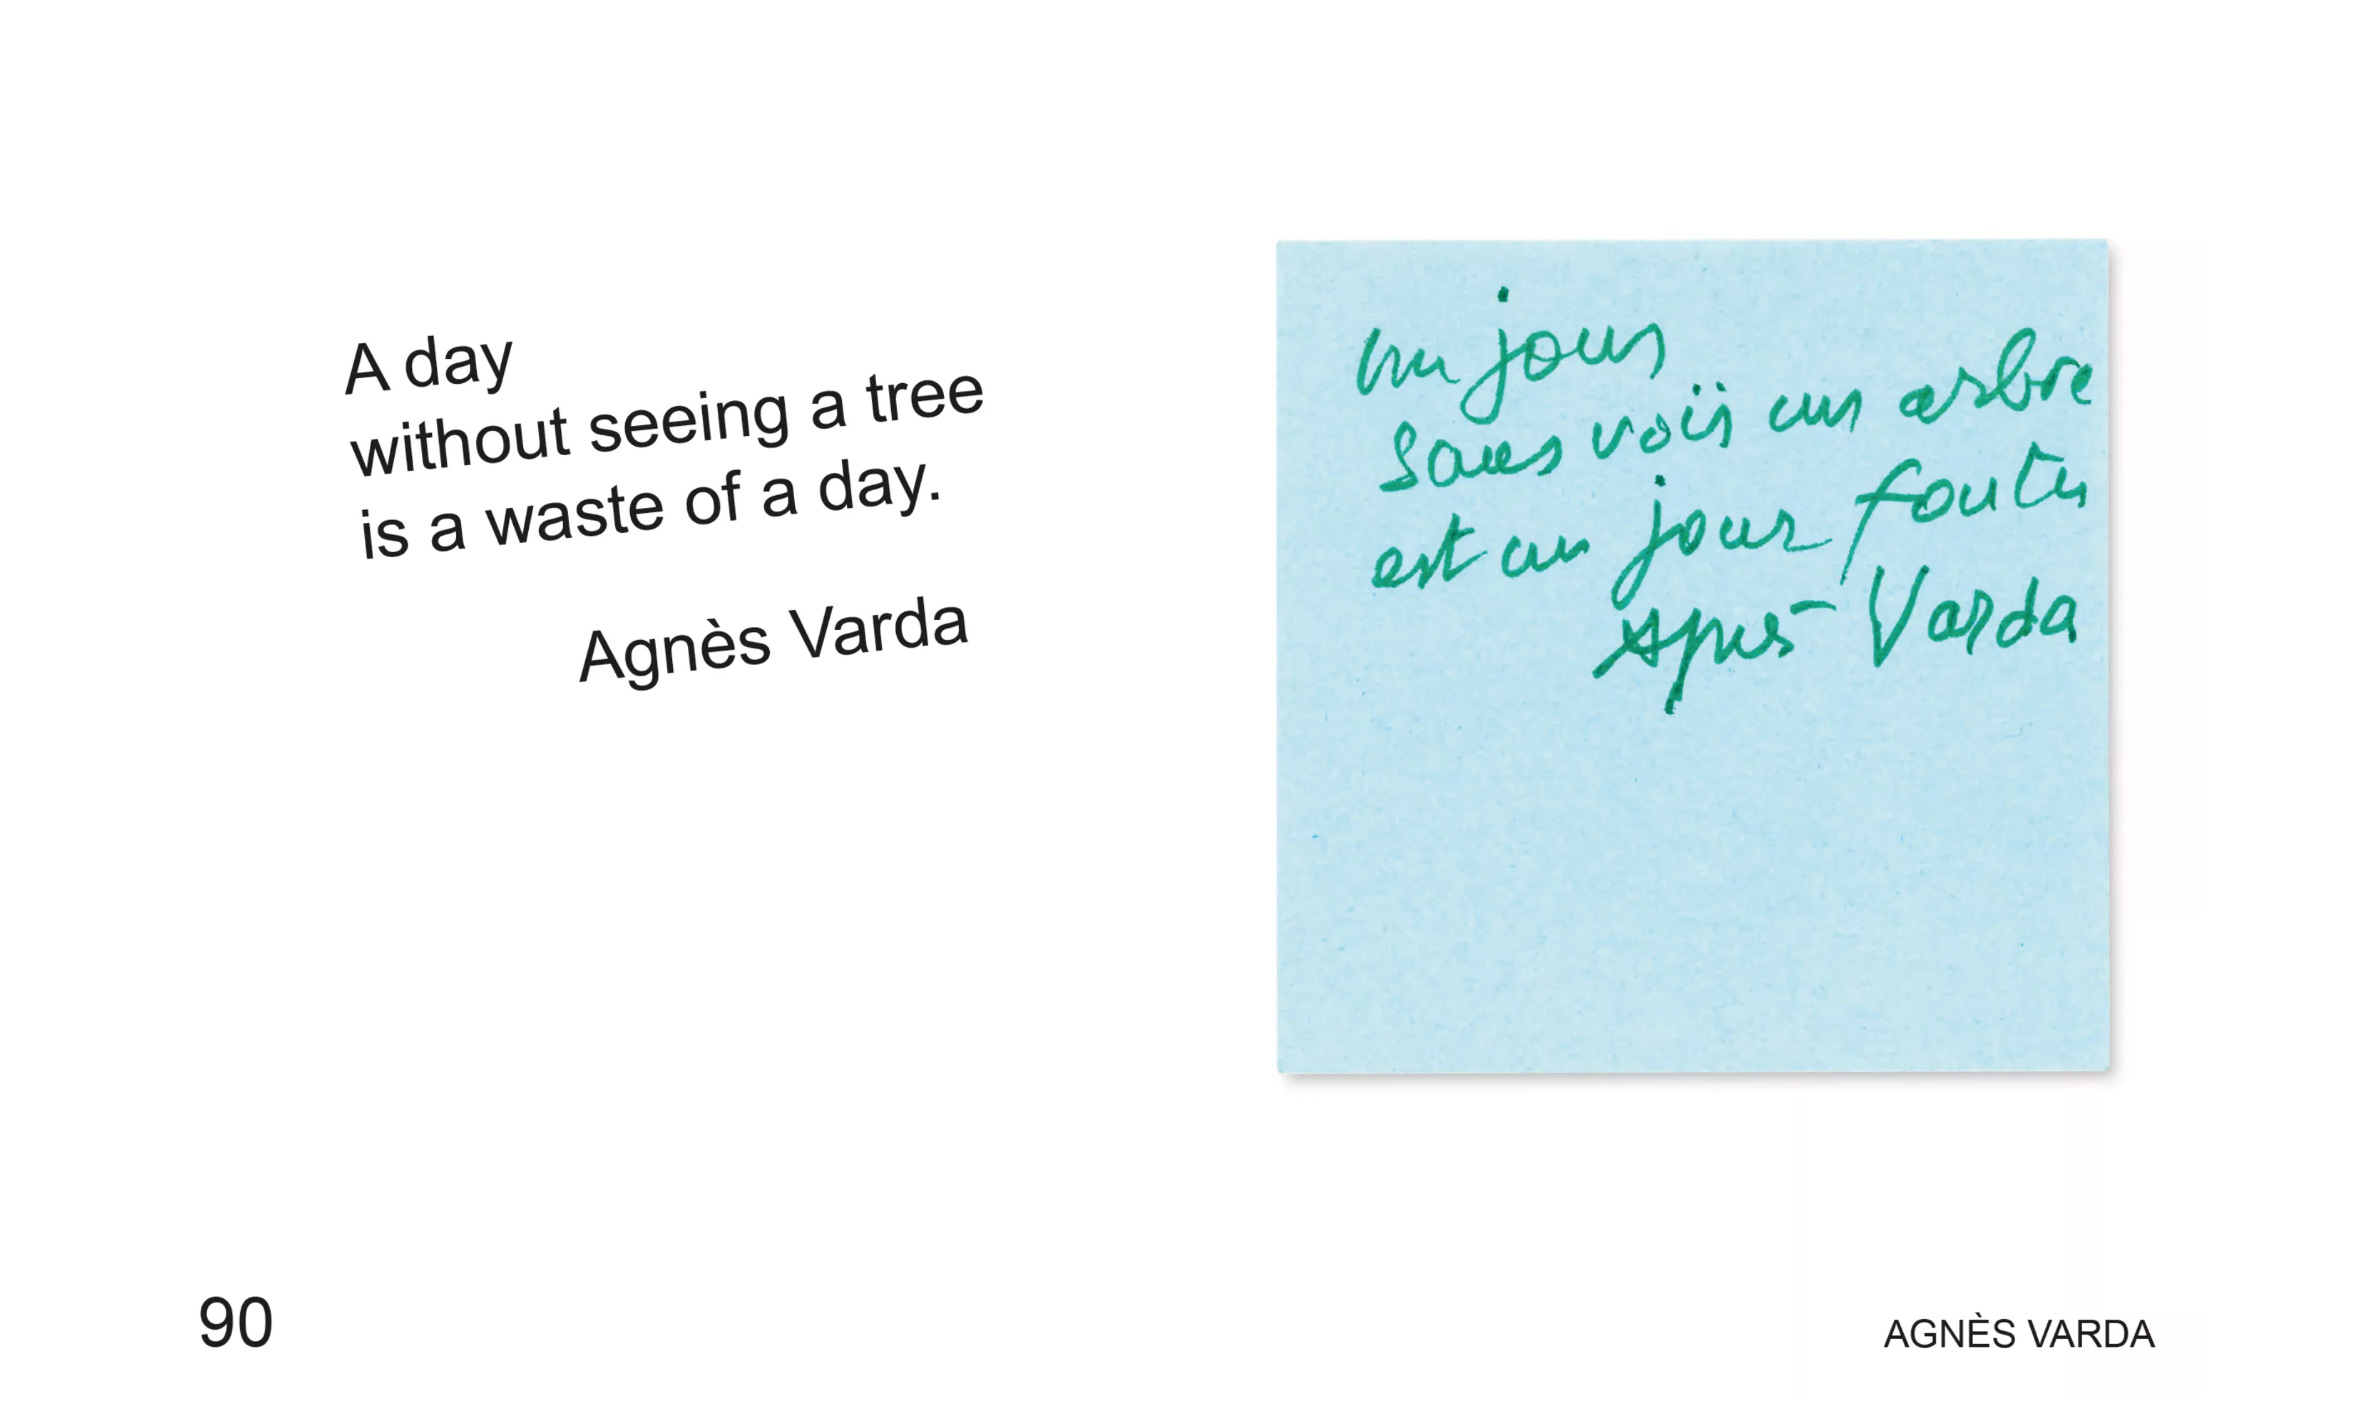 A day
without seeing a tree
is a waste of a day.
Agnès Varda
un jour
sans voir un arbre
est un jour foutu
Agnès Varda
90
AGNÈS VARDA